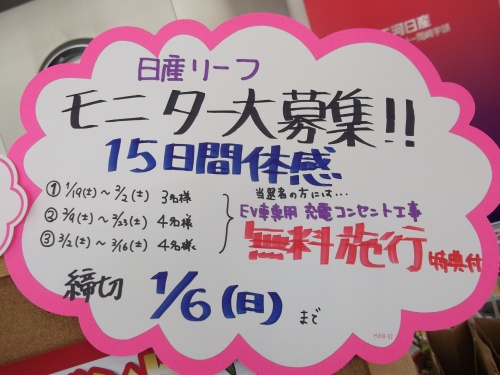 日産リーフ
モニター大募集!!
15日間体感
① 1/19(土)〜2/2(土) 3名様
② 2/9(土)〜2/23(土) 4名様
③ 3/2(土)〜3/16(土) 4名様
当選者の方には…
EV車専用 充電コンセント工事
無料施行特典付
締切 1/6(日)まで
河日産
岡崎